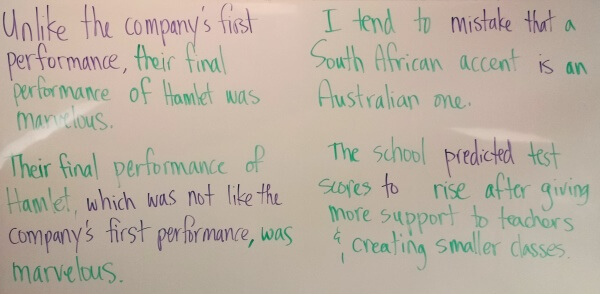 Unlike the company's first
performance, their final
performance of Hamlet was
marvelous.
Their final performance of
Hamlet, which was not like the
company's first performance, was
marvelous.
I tend to mistake that a
South African accent is an
Australian one.
The school predicted test
scores to rise after giving
more support to teachers
& creating smaller classes.